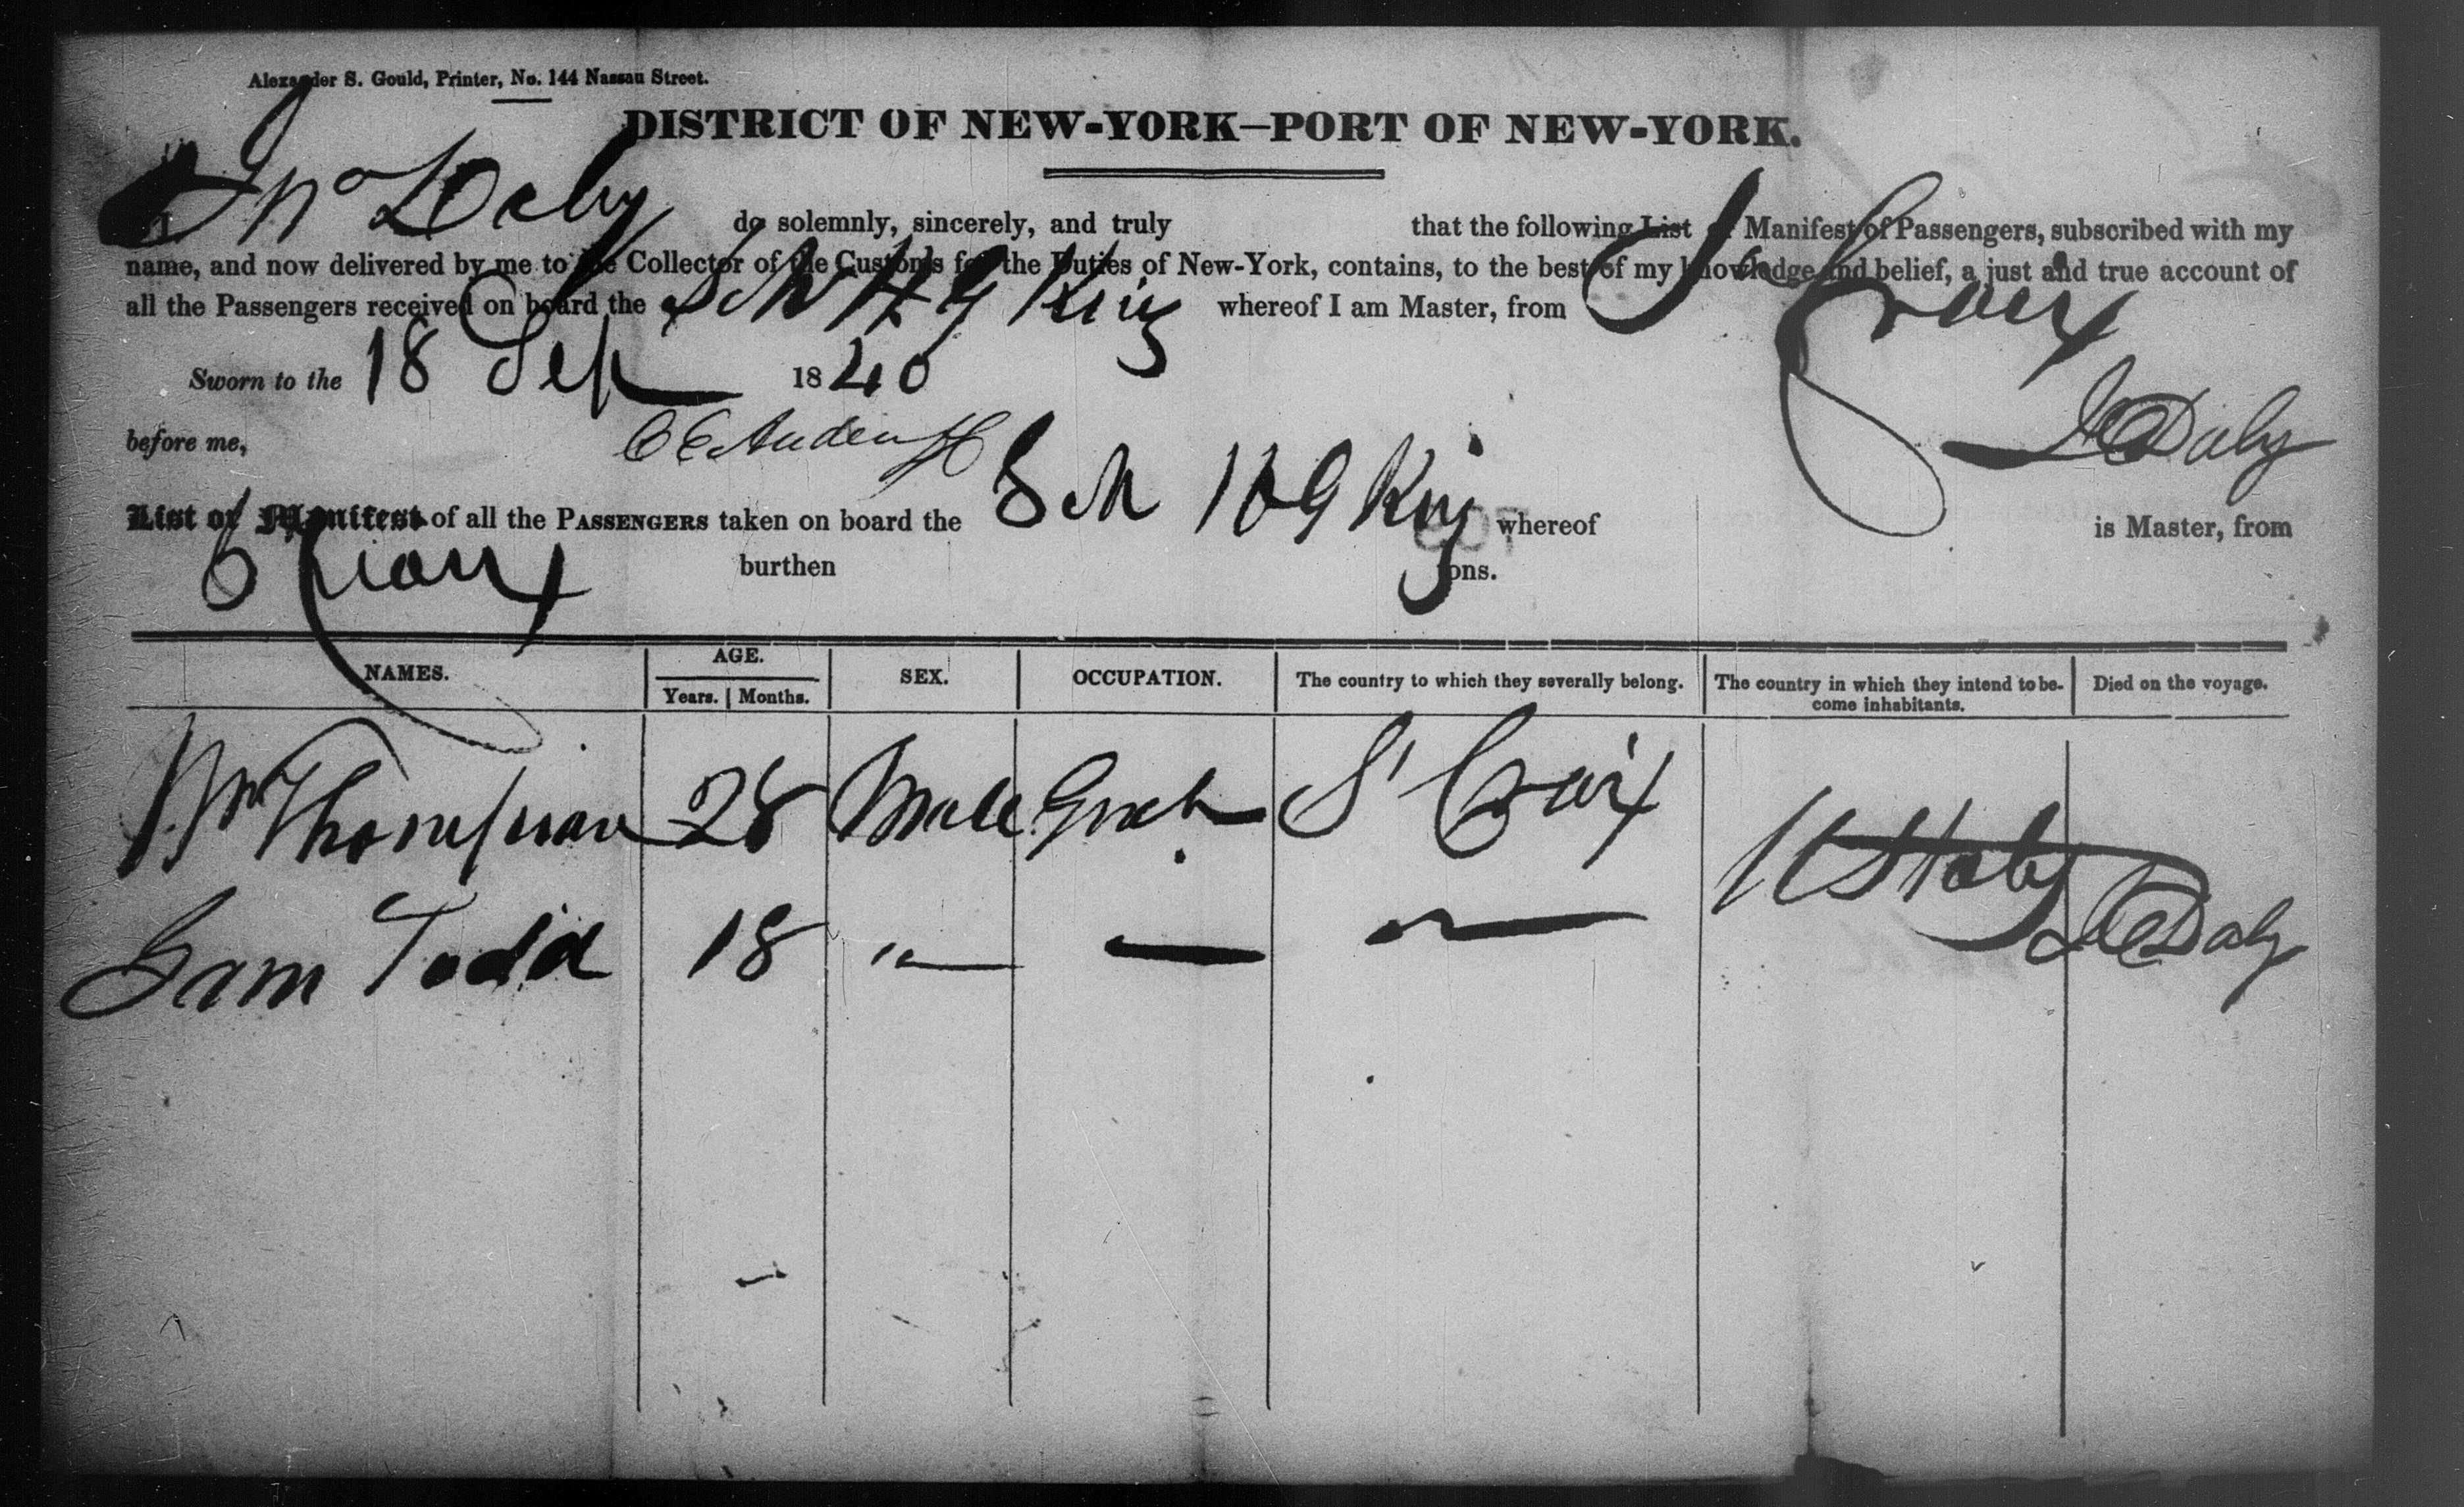 Alexander S. Gould, Printer, No. 144 Nassau Street.
DISTRICT OF NEW-YORK—PORT OF NEW-YORK.
I, Jno Daly do solemnly, sincerely, and truly that the following List or Manifest of Passengers, subscribed with my
name, and now delivered by me to the Collector of the Customs for the Duties of New-York, contains, to the best of my knowledge and belief, a just and true account of
all the Passengers received on board the Sch H G King whereof I am Master, from St Croix
Sworn to the 18 Sep 1840
J Daly
before me,
List or Manifest of all the PASSENGERS taken on board the Sch H G King whereof is Master, from
St Croix burthen tons.
NAMES. AGE. SEX. OCCUPATION. The country to which they severally belong. The country in which they intend to become inhabitants. Died on the voyage.
Years. Months.
Wm Thompson 28 Male St Croix
U States
Sam Todd 18 " — —
J Daly